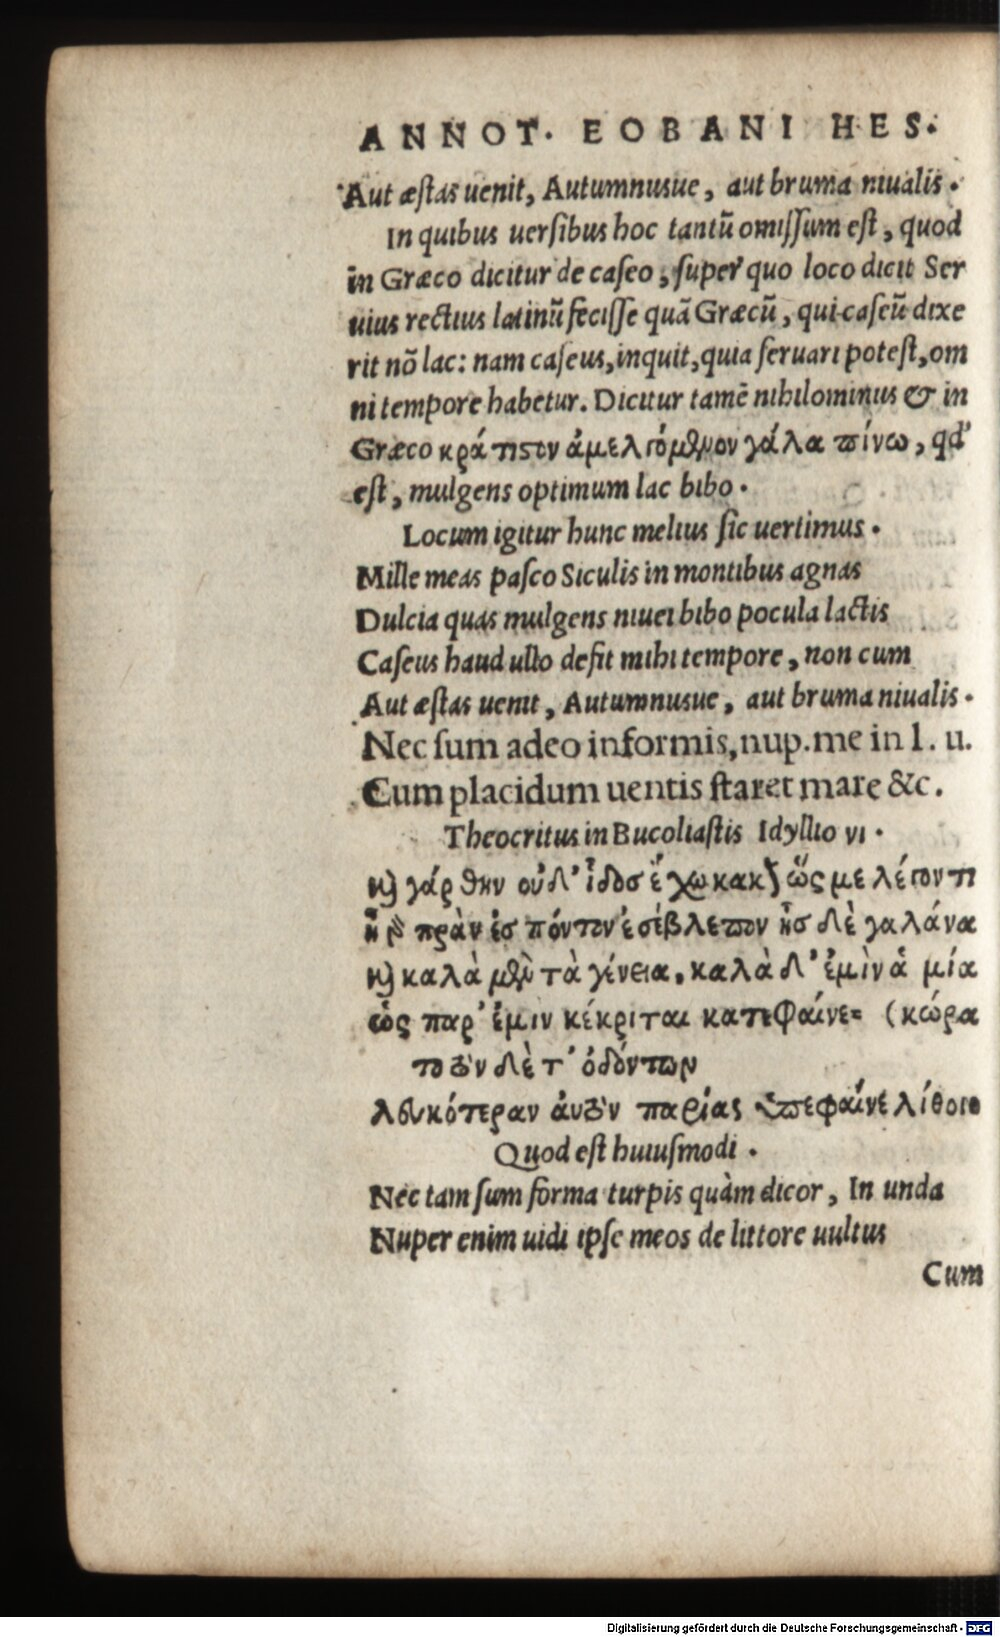 ANNOT. EOBANI HES.
Aut æstas uenit, Autumnusue, aut bruma niualis.
In quibus uersibus hoc tantũ omissum est, quod
in Græco dicitur de caseo, super quo loco dicit Ser
uius rectius latinũ fecisse quã Græcũ, qui caseũ dixe
rit nõ lac: nam caseus, inquit, quia seruari potest, om
ni tempore habetur. Dicitur tamẽ nihilominus & in
Græco κράτιστον ἀμελγόμενον γάλα πίνω, qd'
est, mulgens optimum lac bibo.
Locum igitur hunc melius sic uertimus.
Mille meas pasco Siculis in montibus agnas
Dulcia quas mulgens niuei bibo pocula lactis
Caseus haud ullo defit mihi tempore, non cum
Aut æstas uenit, Autumnusue, aut bruma niualis.
Nec sum adeo informis, nup. me in l. u.
Cum placidum uentis staret mare &c.
Theocritus in Bucoliastis Idyllio vi.
καὶ γάρ θην οὐδ' εἶδος ἔχω κακὸν ὥς με λέγοντι
ἦ γὰρ πρὰν ἐς πόντον ἐσέβλεπον ἦς δὲ γαλάνα
καὶ καλὰ μὲν τὰ γένεια, καλὰ δ' ἐμὶν ἁ μία
ὡς παρ' ἐμιν κέκριται κατεφαίνε= (κώρα
το τῶν δὲ τ' ὀδόντων
λευκότεραν αὐγὰν παρίας ὑπεφαίνε λίθοιο
Quod est huiusmodi.
Nec tam sum forma turpis quàm dicor, In unda
Nuper enim uidi ipse meos de littore uultus
Cum
Digitalisierung gefördert durch die Deutsche Forschungsgemeinschaft - DFG